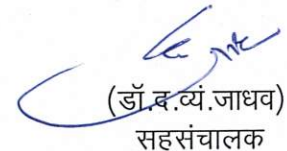 (डॉ.द.व्यं.जाधव)
सहसंचालक